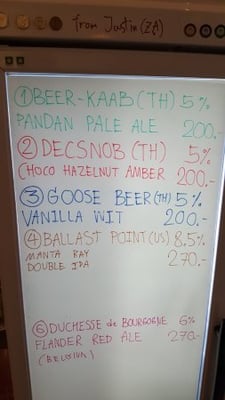 from Justin (ZA)
① BEER-KAAB (TH) 5%
PANDAN PALE ALE 200.-
② DECSNOB (TH) 5%
CHOCO HAZELNUT AMBER 200.-
③ GOOSE BEER (TH) 5%
VANILLA WIT 200.-
④ BALLAST POINT (US) 8.5%
MANTA RAY 270.-
DOUBLE IPA
⑥ DUCHESSE de BOURGOGNE 6%
FLANDER RED ALE 270.-
(BELGIUM)